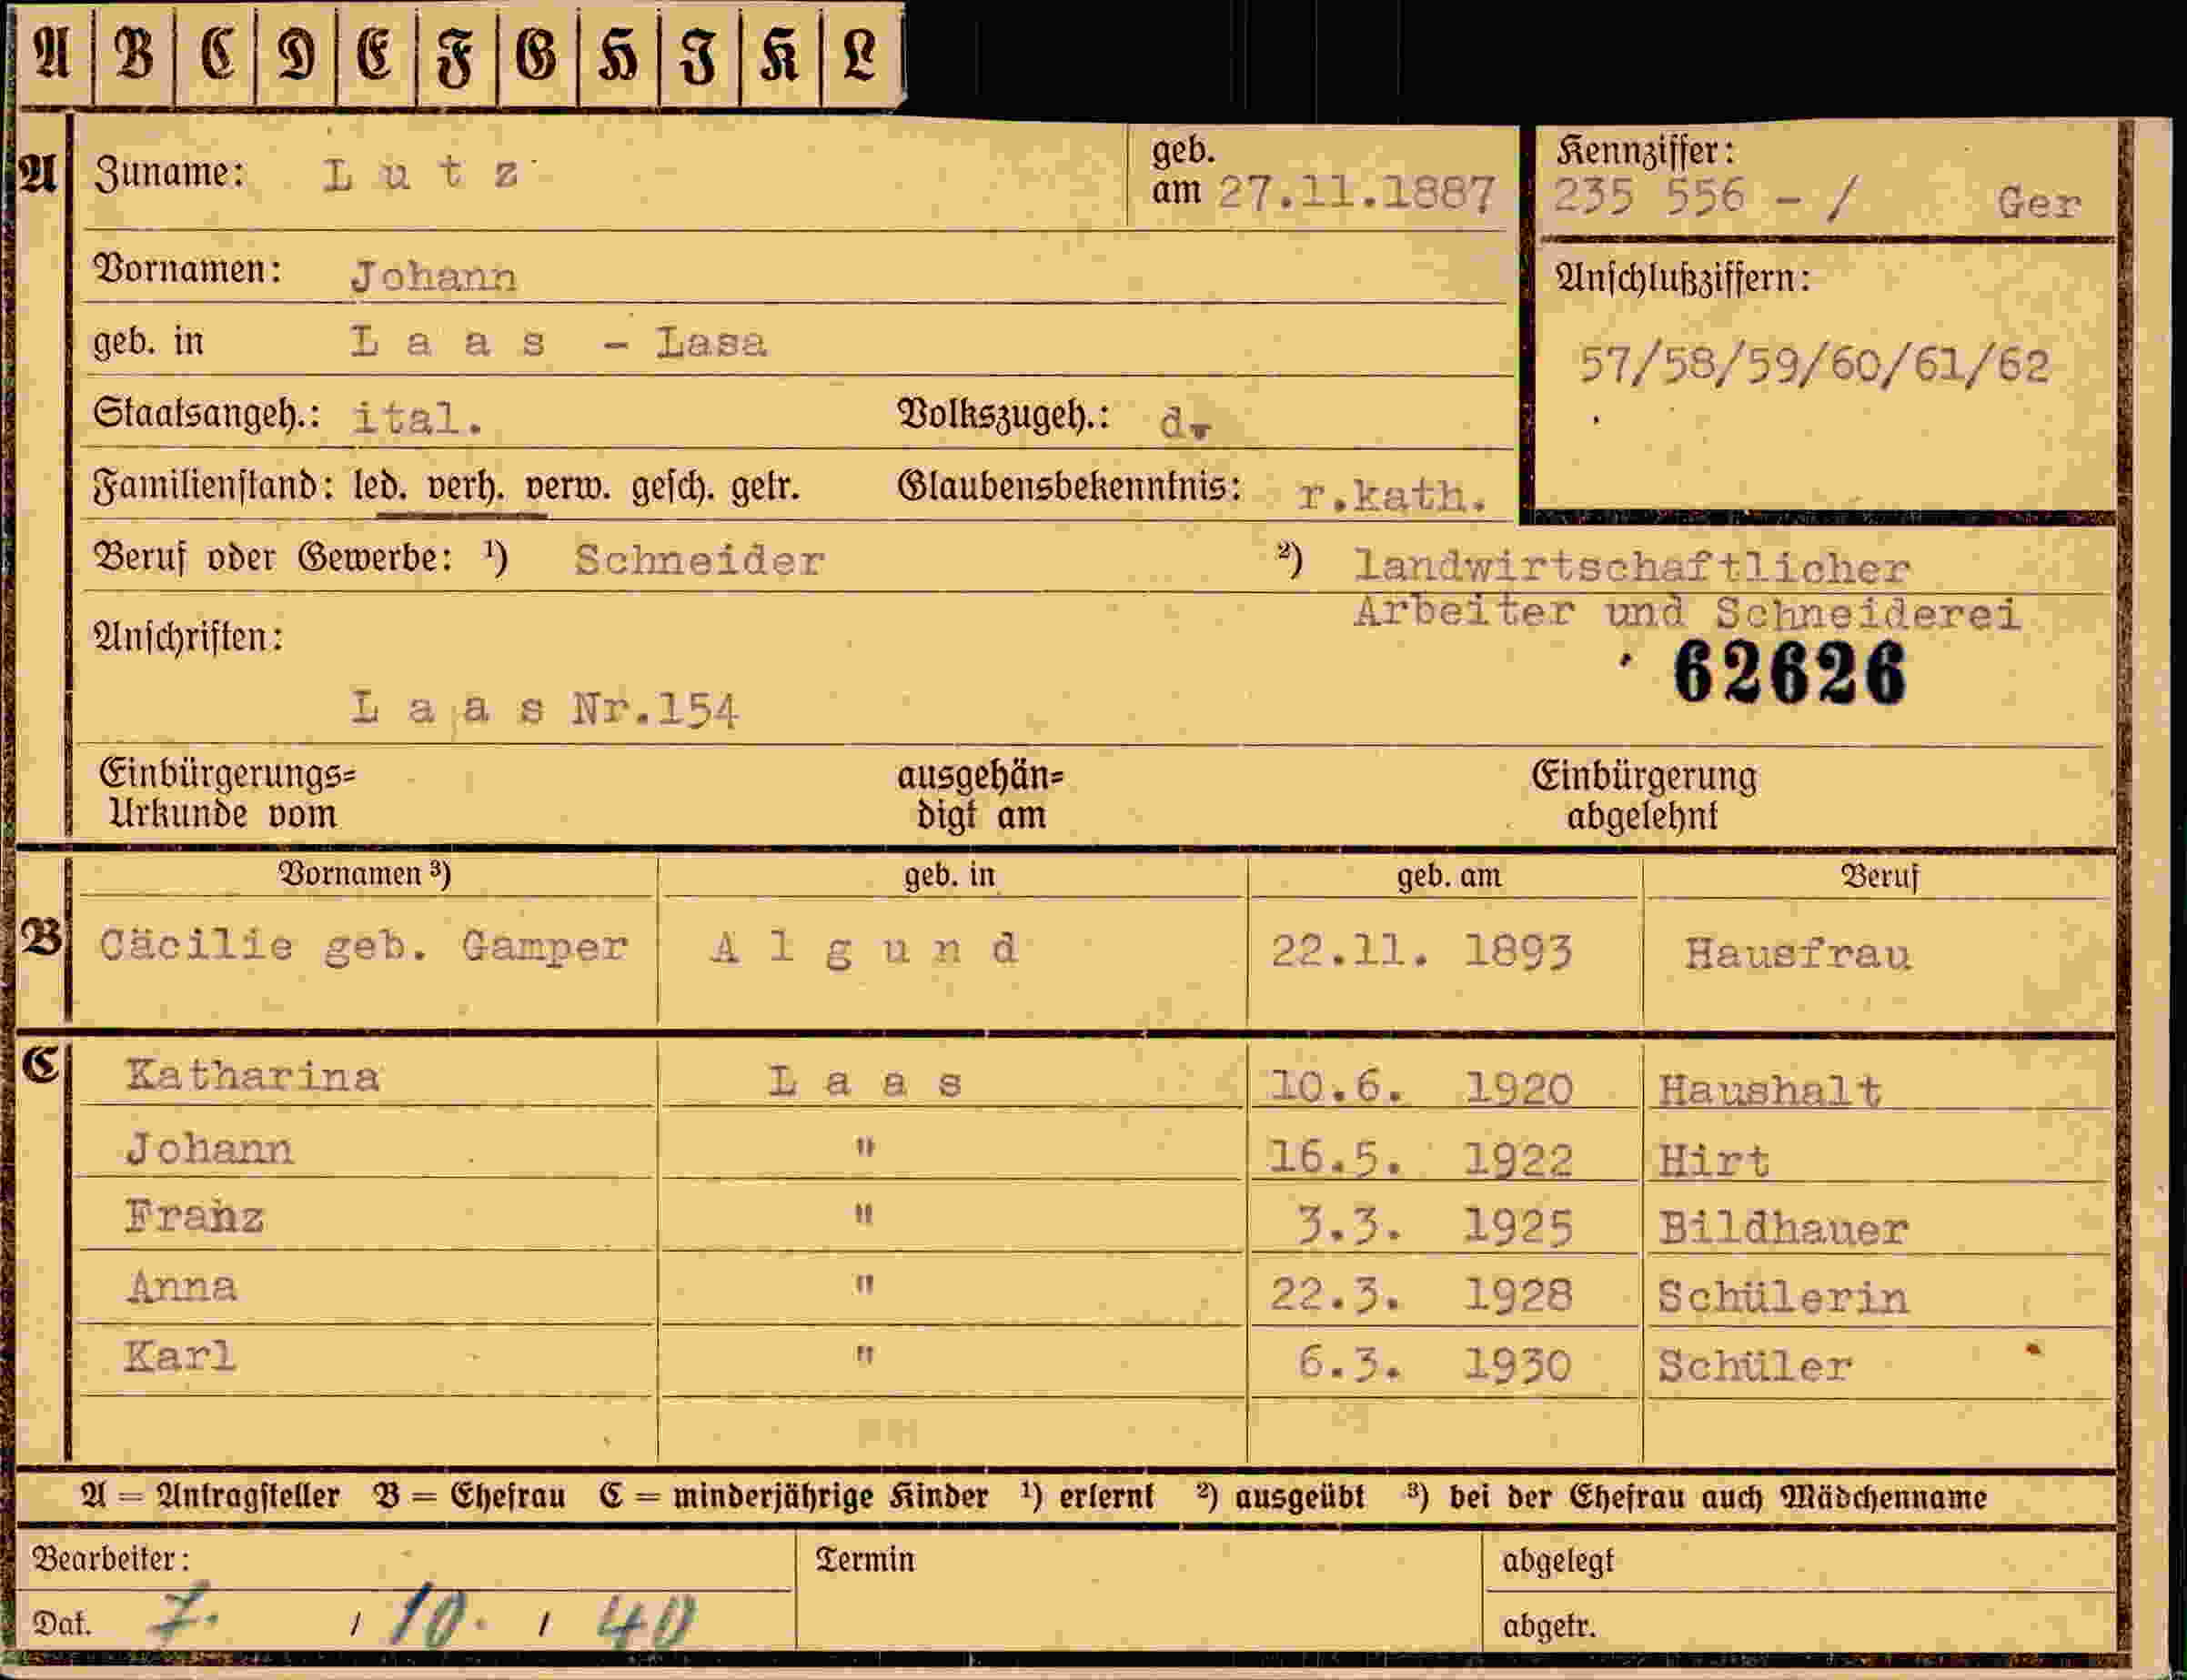 A B C D E F G H I K L
A Zuname: L u t z geb. am 27.11.1887 Kennziffer: 235 556 - / Ger
Vornamen: Johann Anschlußziffern:
geb. in L a a s - Lasa 57/58/59/60/61/62
Staatsangeh.: ital. Volkszugeh.: d.
Familienstand: led. verh. verw. gesch. getr. Glaubensbekenntnis: r.kath.
Beruf oder Gewerbe: ¹) Schneider ²) landwirtschaftlicher
Arbeiter und Schneiderei
Anschriften:
62626
L a a s Nr.154
Einbürgerungs= ausgehän= Einbürgerung
Urkunde vom digt am abgelehnt
Vornamen ³) geb. in geb. am Beruf
B Cäcilie geb. Gamper A l g u n d 22.11. 1893 Hausfrau
C Katharina L a a s 10.6. 1920 Haushalt
Johann " 16.5. 1922 Hirt
Franz " 3.3. 1925 Bildhauer
Anna " 22.3. 1928 Schülerin
Karl " 6.3. 1930 Schüler
A = Antragsteller B = Ehefrau C = minderjährige Kinder ¹) erlernt ²) ausgeübt ³) bei der Ehefrau auch Mädchenname
Bearbeiter: Termin abgelegt
Dat. 7. / 10. / 40 abgetr.